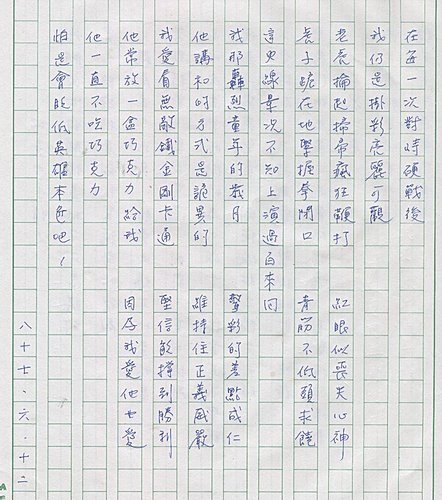 在每一次對峙硬戰後
我仍是掛彩亮麗可觀
老爸掄起掃帚瘋狂鞭打 紅眼似喪失心神
長子跪在地學握拳閉口 青筋不低頭求饒
這火線景況不知上演過百來回
我那轟烈童年的歲月 彩的差點成仁
他講和的方式是詭異的 維持住正義威嚴
我愛看無敵鐵金剛卡通 堅信能撐到勝利
他常放一盒巧克力給我 因為我愛他也愛
他一直不吃巧克力
怕是會貶低英雄本色吧！
八十七．六．十二